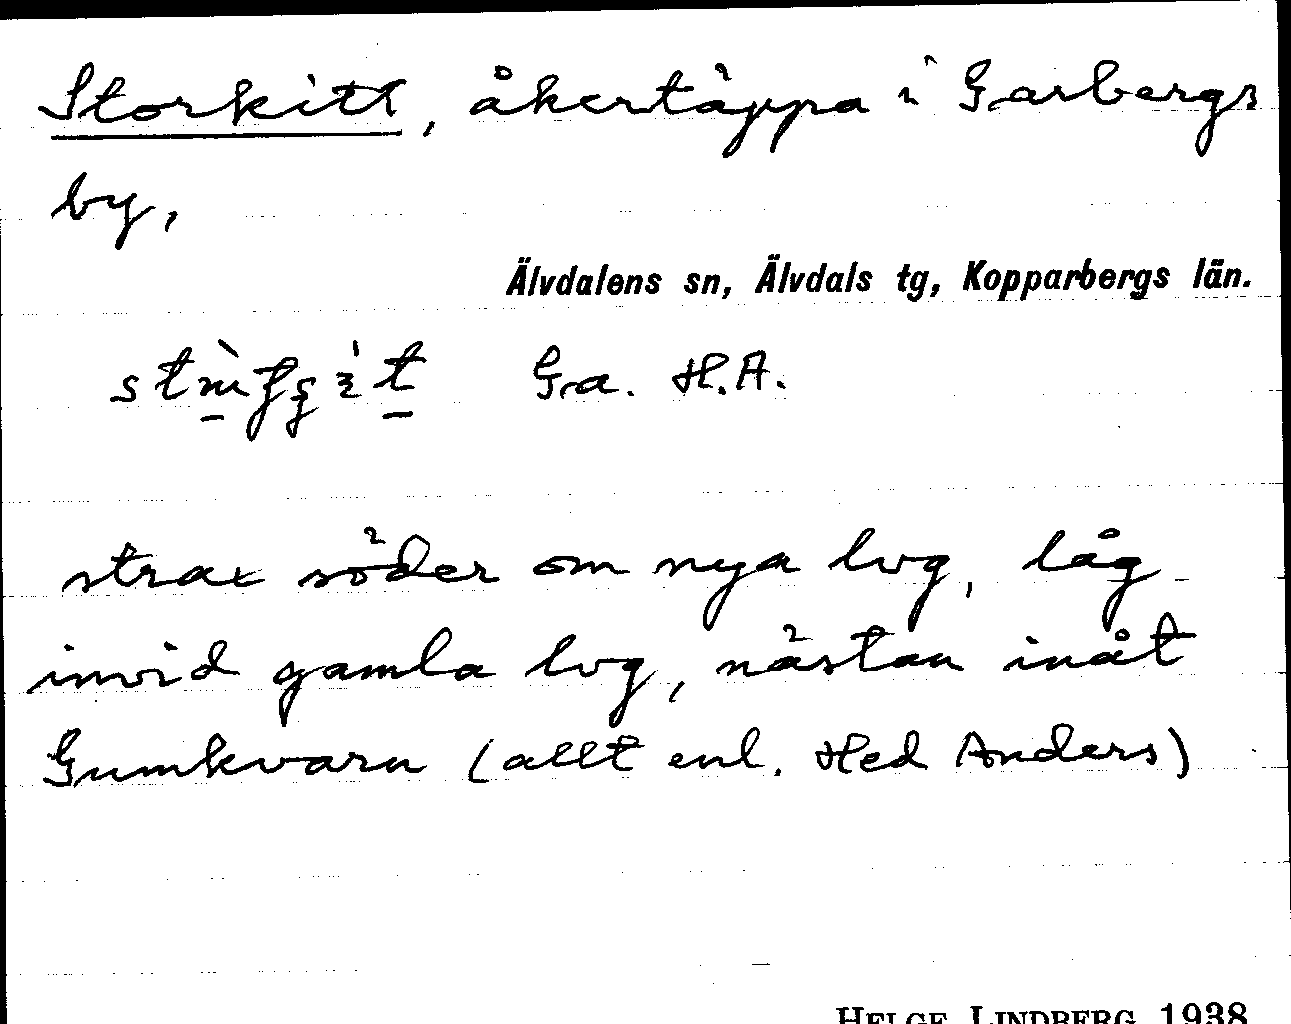 Storkitt, åkertäppa i Garbergs
by,
Älvdalens sn, Älvdals tg, Kopparbergs län.
Gra. H.A.
strax söder om nya lvg, låg
invid gamla lvg, nästan inåt
Gumkvarn (allt enl. Hed Anders)
HELGE LINDBERG 1938